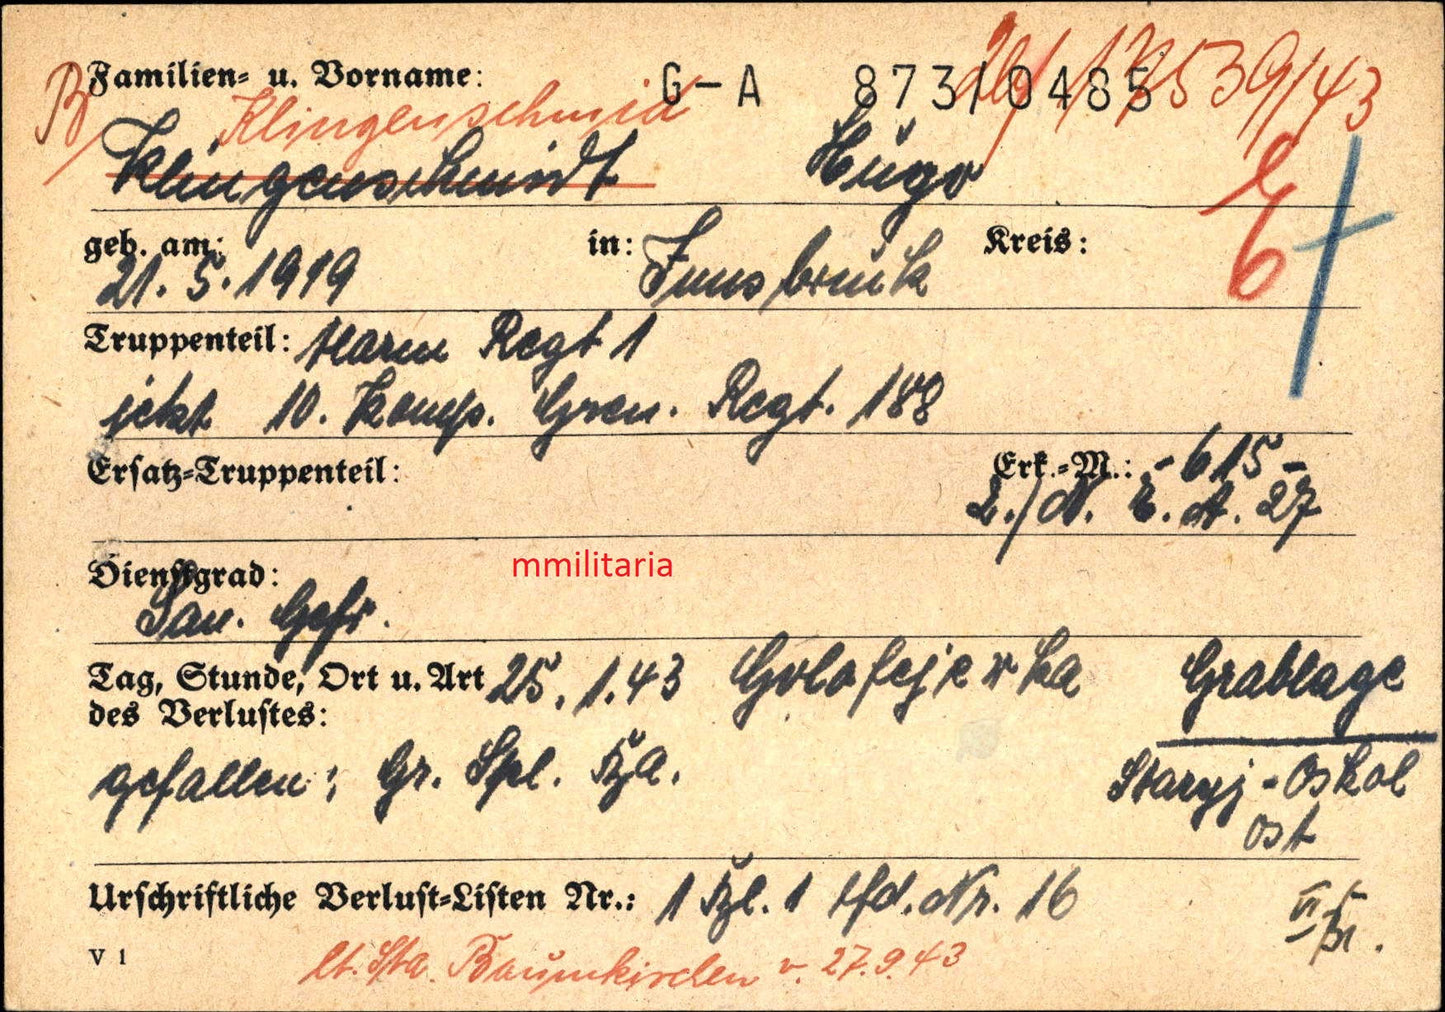 Familien- u. Vorname: G-A 873/0485
B Klingenschmid
Klingenschmidt Hugo
geb. am: in: Kreis:
21. 5. 1919 Innsbruck
Truppenteil: Marm Regt 1
jetzt 10. Komp. Gren. Regt. 188
Ersatz-Truppenteil: Erk.-M.: -615-
2./N. E. A. 27
Dienstgrad: mmilitaria
San. Gefr.
Tag, Stunde, Ort u. Art 25. 1.43 Golofejewka Grablage
des Verlustes:
gefallen; Gr. Spl. Staryj-Oskol
Ost
Urschriftliche Verlust-Listen Nr.: 1 1 lfd. Nr. 16
V 1 lt. Sta. Baumkirchen v. 27.9.43